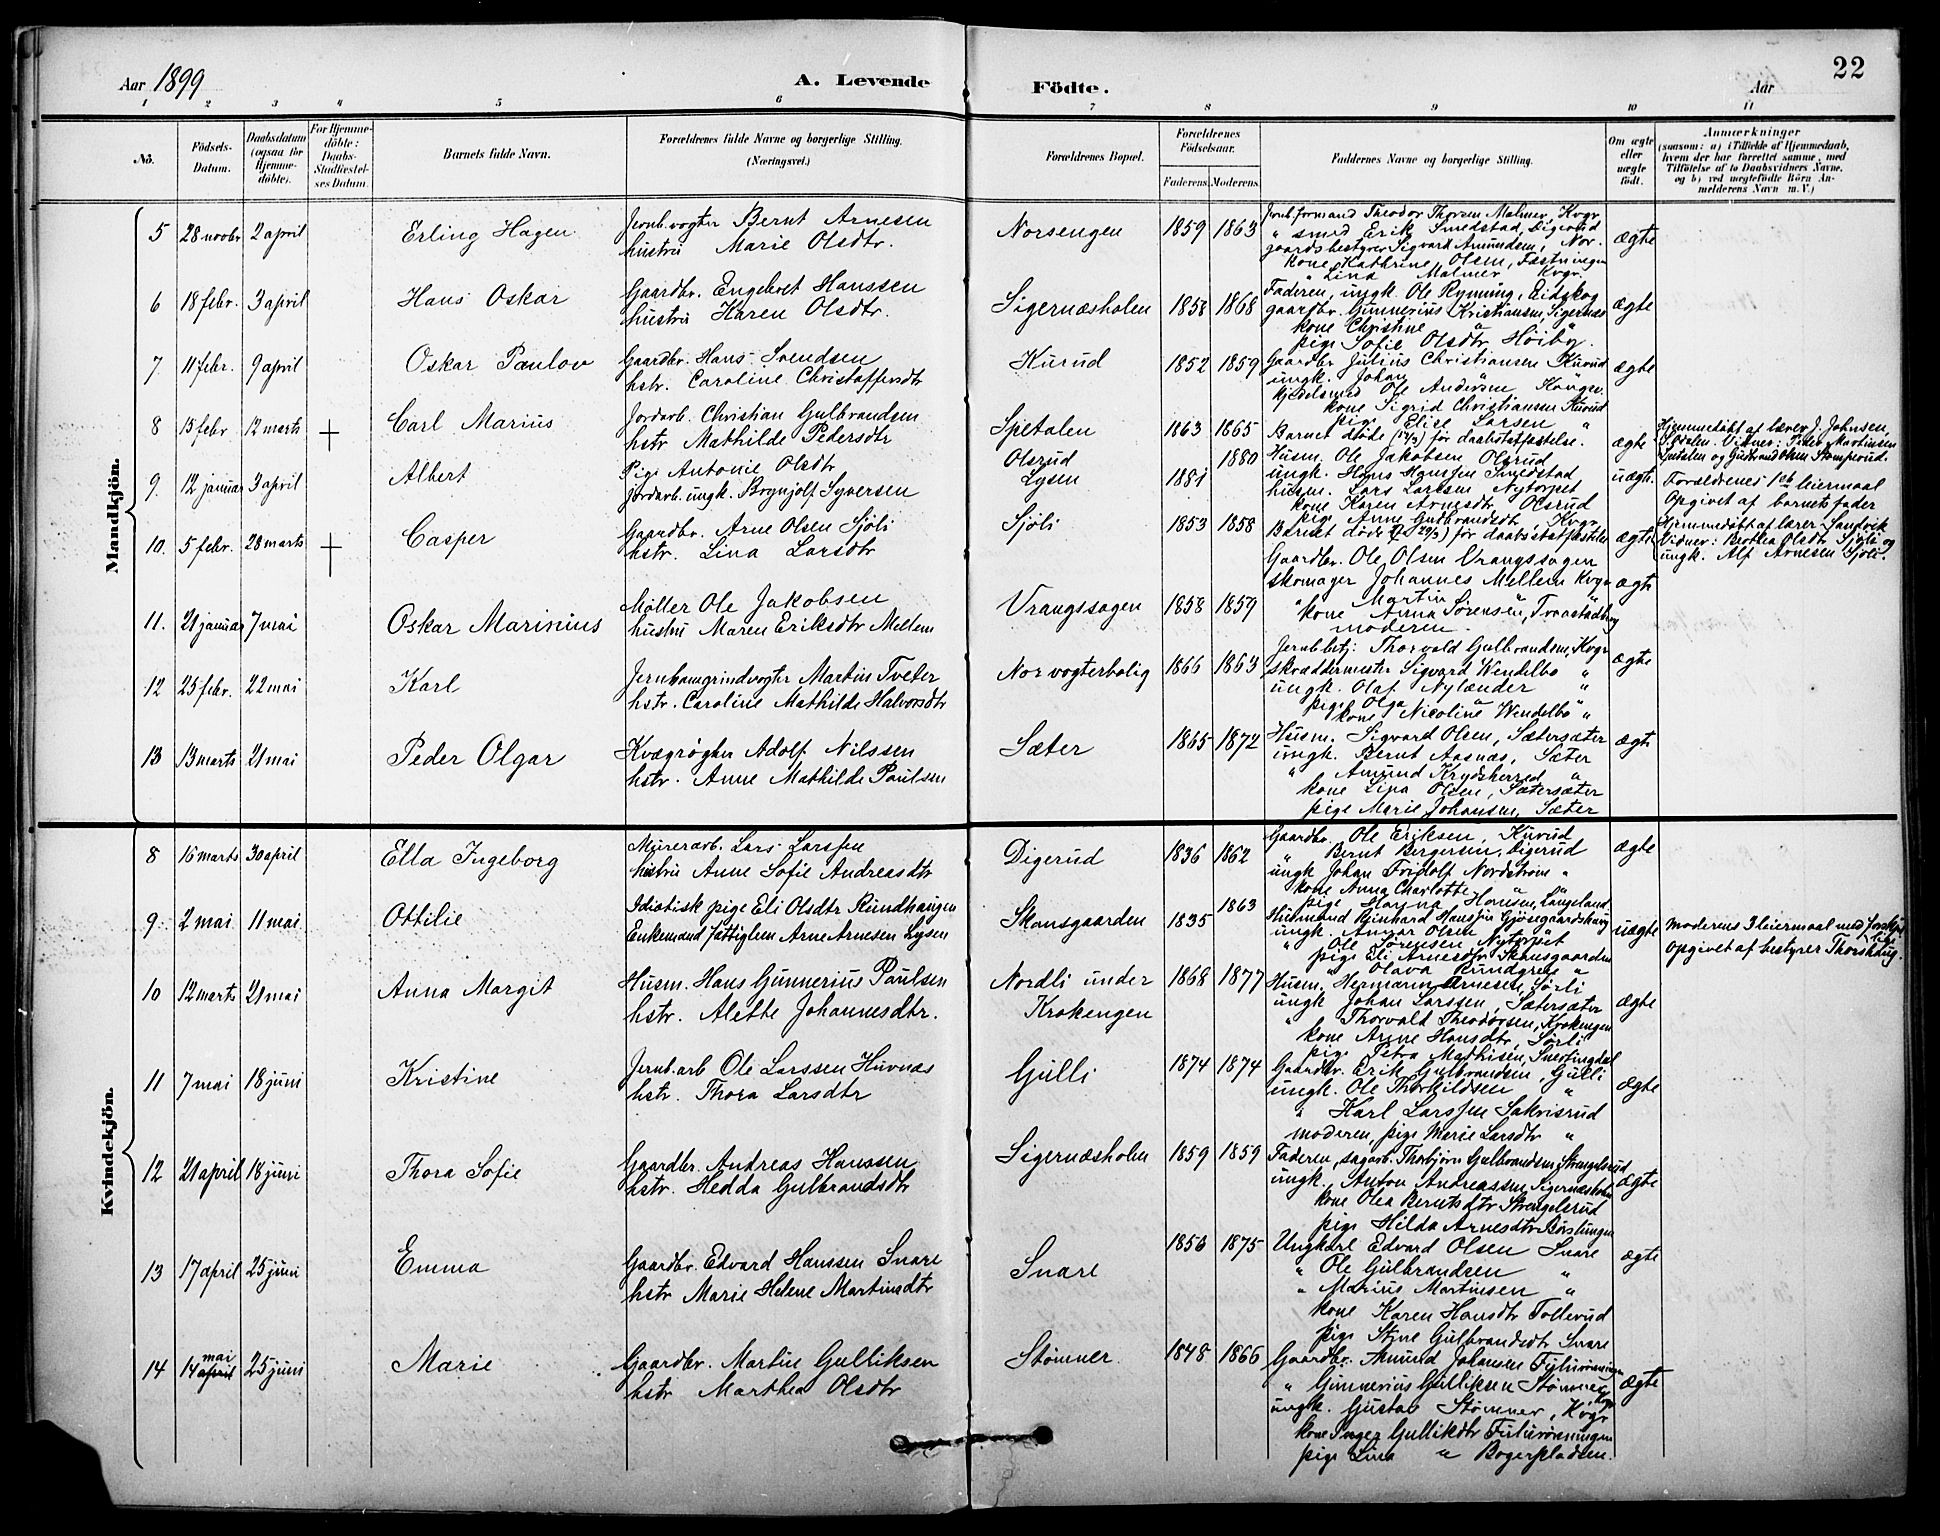 Aar 1899
A. Levende Födte.
Aar
22
1 2 3 4 5 6 7 8 9 10 11
No.
Födsels-Datum.
Daabsdatum (ogsaa for Hjemme-döbte).
For Hjemme-döbte: Daabs-Stadfæstel-ses Datum.
Barnets fulde Navn.
Forældrenes fulde Navne og borgerlige Stilling. (Næringsvei.)
Forældrenes Bopæl.
Forældrenes Födselsaar.
Faderens. Moderens.
Faddernes Navne og borgerlige Stilling.
Om ægte eller uægte födt.
Anmærkninger
(saasom: a) i Tilfælde af Hjemmedaab, hvem der har forrettet samme, med Tilföielse af to Daabsvidners Navne, og b) ved uægtefödte Börn Anmelderens Navn m. V.)
Mandkjön.
5 28 novbr 2 april Erling Hagen Jernb.vogter Bernt Arnesen
hustru Marie Olsdtr. Norsengen 1859 1863 ægte
Jernb.formand Theodor Thorsen Malmer, Kvgr.
" smed Erik Smedstad, Digerud
gaardsbestyrer Sigvard Amundsen, Nor.
kone Kathrine Olsen, Fæstningen
" Lina Malmer Kvgr.
6 18 febr. 3 april Hans Oskar Gaardbr. Engebret Hanssen
hustru Karen Olsdtr. Sigernæsholen 1858 1868 ægte
Faderen, ungk. Ole Ryning, Eidskog
gaardbr. Gunnerius Kristiansen, Sigernæs
kone Christine "
pige Sofie Olsdtr Höiby.
7 11 febr. 9 april Oskar Paulov Gaardbr. Hans Svendsen
hstr. Caroline Christoffersdtr Kurud 1852 1859 ægte
Gaardbr Julius Christiansen Kurud
ungk. Johan "
kjedelsmed Ole Andersen Kongsv.
kone Sigrid Christiansen Kurud
pige Elise Larsen "
8 15 febr 12 marts + Carl Marius Jordarb. Christian Gulbrandsen
hstr Mathilde Pedersdtr Spetalen 1863 1865 ægte
Barnet døde før daabsstadfæstelse.
Hjemmedøbt af lærer J. Johnsen,
9. 12 januar 3 april Albert Pige Antonie Olsdtr
jordarb. ungk. Brynjolf Syversen Olsrud
Lysen 1881 1880 uægte
Husm. Ole Jakobsen Olsrud
ungk. Hans Hanssen Smedstad
husm. Lars Larssen Nytorpet
kone Karen Arnesdtr Olsrud
pige Anne Gudbrandsdtr, Kvgr.
Forældrenes 1ste leiermaal
Opgivet af barnets fader
10. 5 febr. 28 marts + Casper Gaardbr. Arne Olsen Sjöli
hstr. Lina Larsdtr Sjöli 1853 1858 ægte
Barnet døde før daabsstadfæstelse
Hjemmedøbt af lærer Sandvik
Vidner: Berthea Olsdtr Sjöli og
ungk. Alf Arnesen Sjöli.
11. 21 januar 7 mai Oskar Marinius Møller Ole Jakobsen
hustru Maren Eriksdtr Mellem Vrangssagen 1858 1859 ægte
Gaardbr. Ole Olsen Vrangssagen
skomager Johannes Mellem Kvgr
" Martin "
kone Anna Sørensen,
moderen
12 25 febr. 22 mai Karl Jernbanegrindvogter Martin Tveter
hstr. Caroline Mathilde Halvorsdtr Nor vogterbolig 1866 1863 ægte
Jernb.betj: Thorvald Gulbrandsen, Kvgr
skræddermester Sigvard Wendelbo "
ungk. Olaf Nylænder "
pige Olga "
kone Nicoline Wendelbo "
13 13 marts 21 mai Peder Olgar Kvægrøgter Adolf Nilssen
hstr. Anne Mathilde Paulsen Sæter 1865 1872 ægte
Husm. Sigvard Olsen, Sætersæter
ungk. Bernt Aasnæs, Sæter
" Amund Krydsherred "
kone Lina Olsen, Sætersæter
pige Marie Johansen, Sæter
Kvindekjön.
8 16 marts 30 april Ella Ingeborg Murerarb. Lars Larssen
hustru Anne Sofie Andreasdtr Digerud 1836 1862 ægte
Gaardbr. Ole Eriksen, Kurud
" Bernt Bergersen, Digerud
ungk Johan Fridolf Nordstrøm "
kone Anna Charlotte "
pige Magna Hansen, Langeland
9 2 mai 11 mai Ottilie Idiotisk pige Eli Olsdtr Rundhaugen
Enkemand fattiglem Arne Arnesen Lysen Skansgaarden 1835 1863 uægte
Husmand Reinhard Hanssen
ungk. Anvar Olsen "
" Ole Sørensen Nytorpet
pige Eli Arnesdtr Skansgaarden
" Olava Rundgren "
Moderens 3 leiermaal med
Opgivet af bestyrer Thorshaug.
10 12 marts 21 mai Anna Margit Husm. Hans Gunnerius Paulsen
hstr. Alette Johannesdtr. Nordli under
Krokengen 1868 1877 ægte
Husm. Hermann Arnesen, Sörli
ungk Johan Larssen, Sætersæter
" Thorvald Theodorsen, Krokengen
kone Anne Hansdtr, Sörli
pige Petra Mathisen, Snertingdal
11 7 mai 18 juni Kristine Jernb.arb Ole Larssen Huvnæs
hstr. Thora Larsdtr Gulli 1874 1874 ægte
Gaardbr. Erik Gulbrandsen, Gulli
ungk. Ole Thorkildsen "
" Karl Larssen Sakrisrud
moderen, pige Marie Larsdtr "
12 21 april 18 juni Thora Sofie Gaardbr. Andreas Hanssen
hstr. Hedda Gulbrandsdtr Sigernæsholen 1859 1859 ægte
Faderen, sagarb. Thorbjörn Gulbrandsen, Strengelsrud
ungk. Anton Andreassen Sigernæsholen
kone Olea Berntsdtr Strengelsrud
pige Hilda Arnesdtr Børslungen
13 17 april 25 juni Emma Gaardbr. Edvard Hanssen Snare
hstr Marie Helene Martinsdtr Snare 1856 1875 ægte
Ungkarl Edvard Olsen Snare
" Ole Gulbrandsen "
" Marius Martinsen "
kone Karen Hansdtr Tollerud
pige Styne Gulbrandsdtr Snare
14 14 april mai 25 juni Marie Gaardbr. Martin Gulliksen
hstr. Marthea Olsdtr Stømner. 1848 1866 ægte
Gaardbr. Amund Johansen
" Gunnerius Gulliksen Stømner
ungk. Gustav Stømner, Kvgr
kone Inger Gulliksdtr
pige Lina " Bogerpladsen.